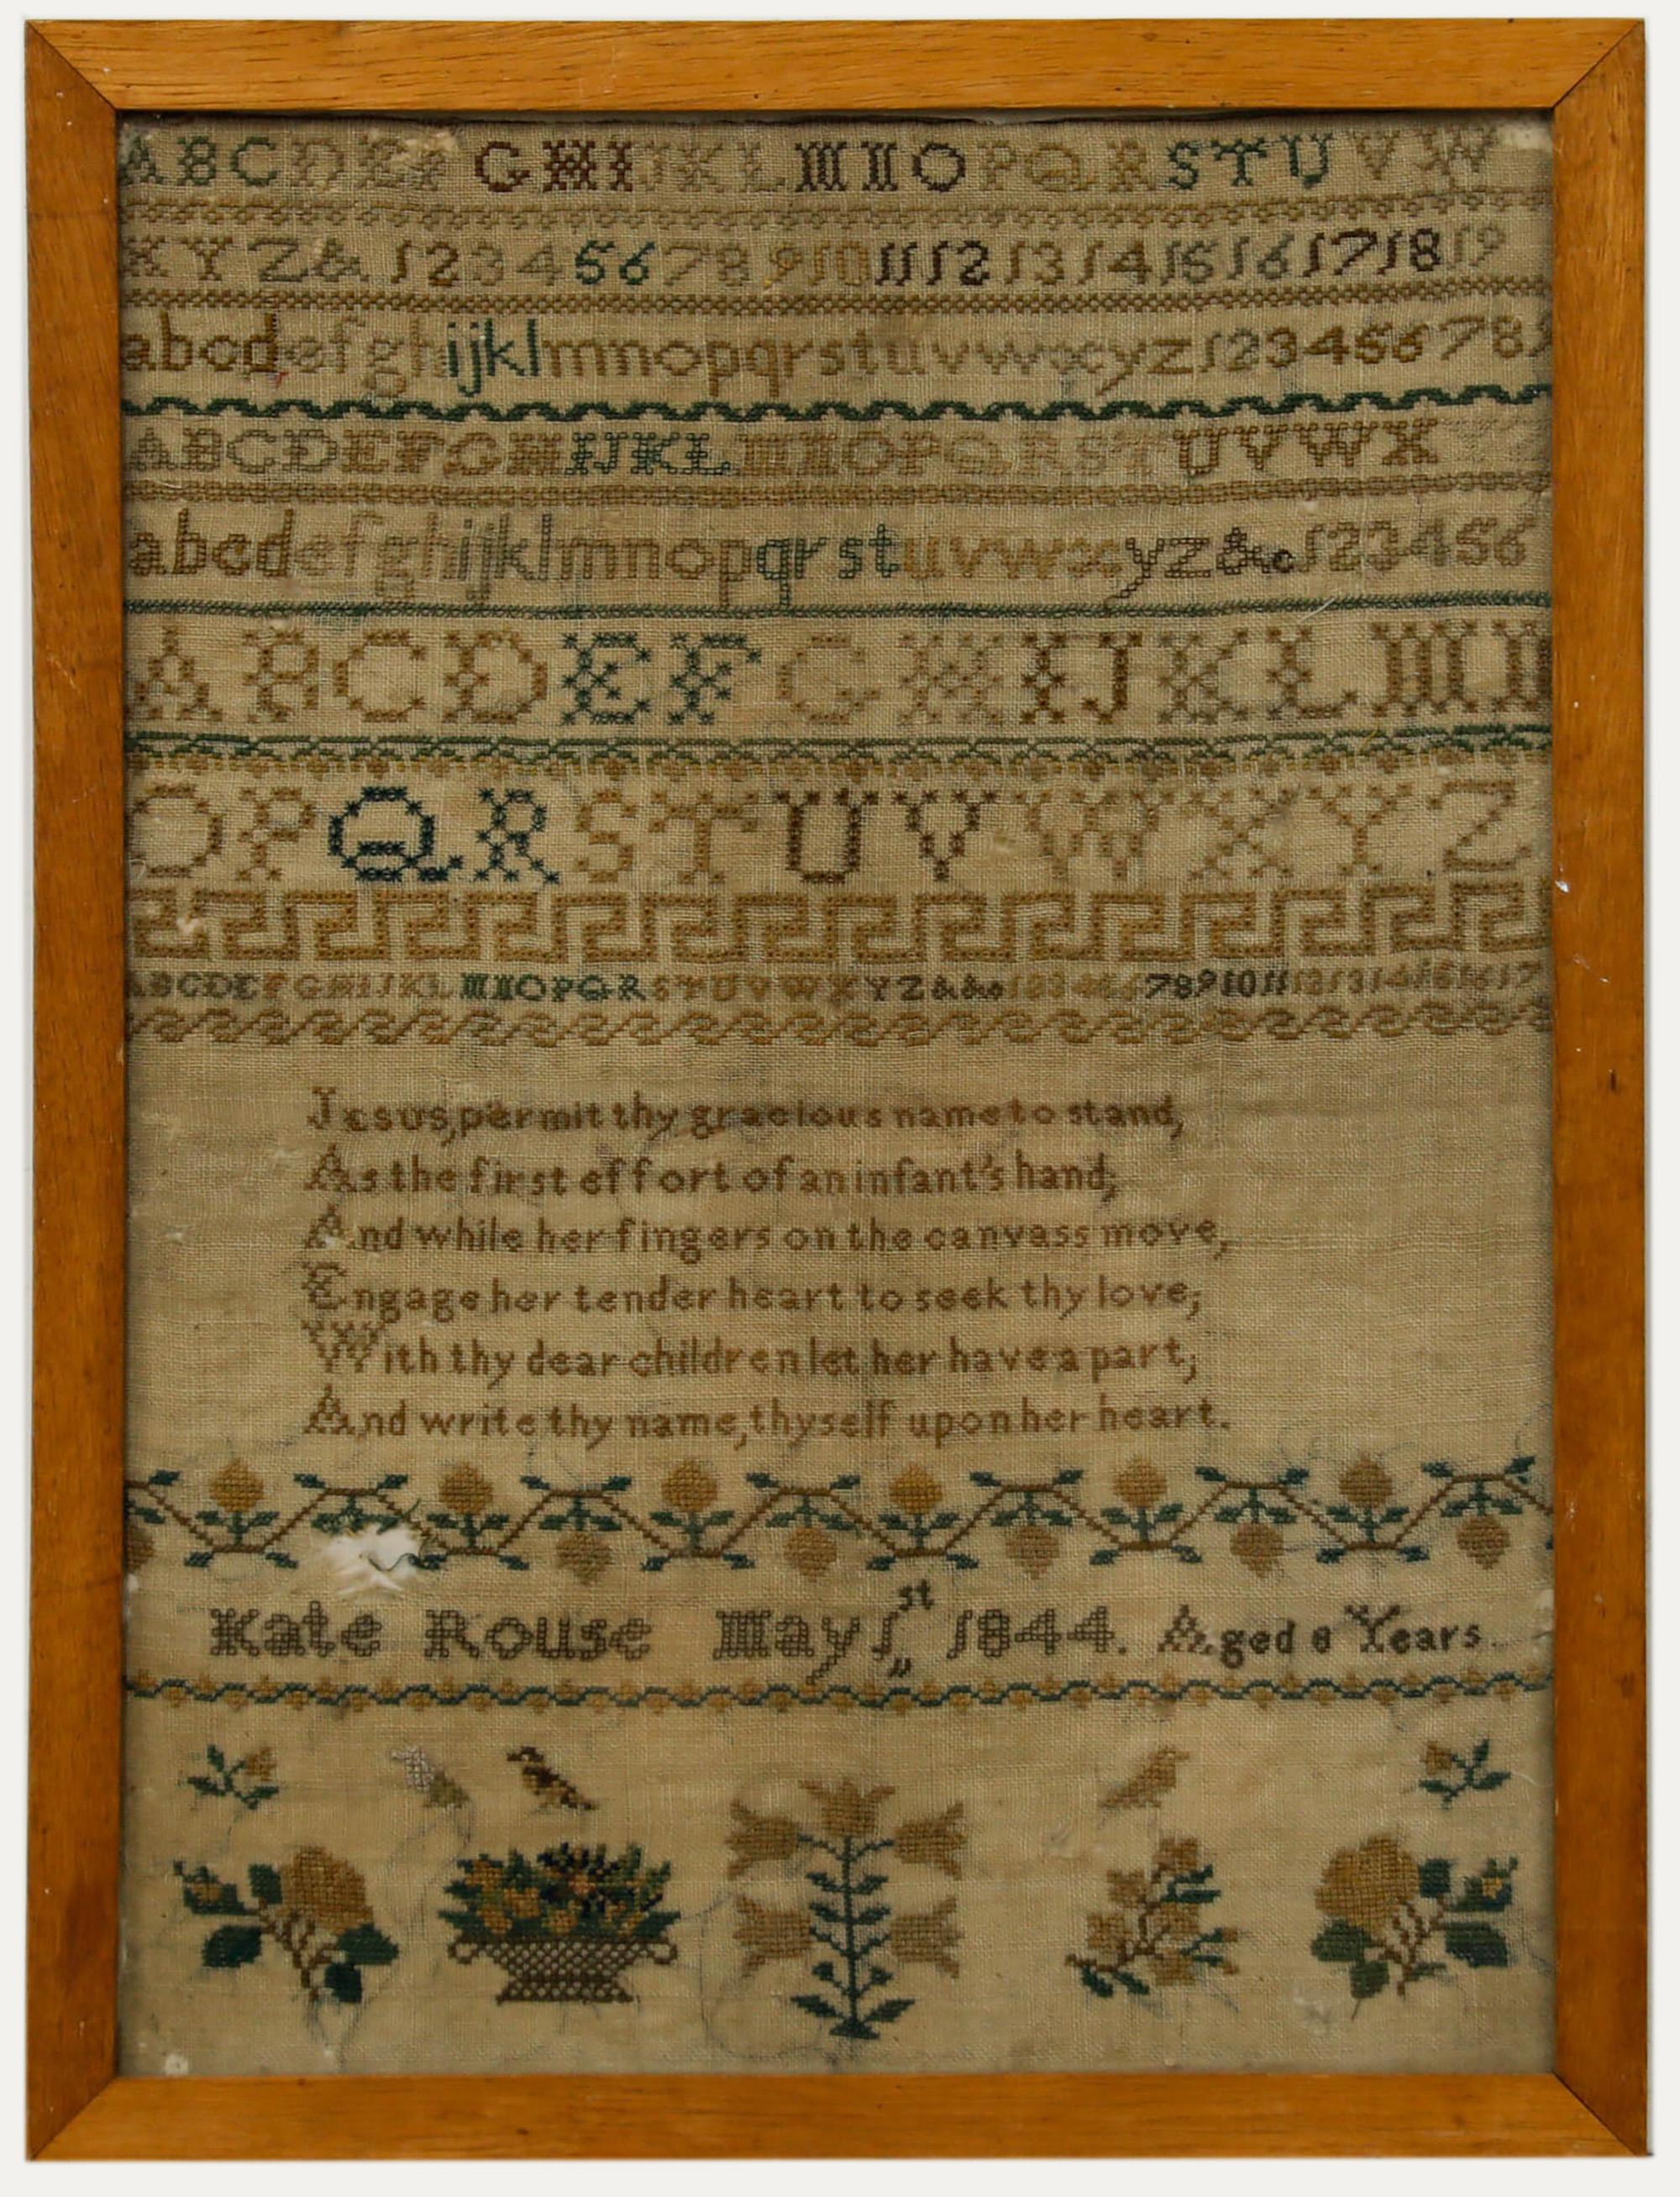 A B C D E F G H I J K L M N O P Q R S T U V W
X Y Z & 1 2 3 4 5 6 7 8 9 10 11 12 13 14 15 16 17 18 19
a b c d e f g h i j k l m n o p q r s t u v w x y z 1 2 3 4 5 6 7 8 9
A B C D E F G H I J K L M N O P Q R S T U V W X
a b c d e f g h i j k l m n o p q r s t u v w x y z &c 1 2 3 4 5 6
A B C D E F G H I J K L M N
O P Q R S T U V W X Y Z
A B C D E F G H I J K L M N O P Q R S T U V W X Y Z & &c 1 2 3 4 5 6 7 8 9 10 11 12 13 14 15 16 17
Jesus, permit thy gracious name to stand,
As the first effort of an infant's hand;
And while her fingers on the canvass move,
Engage her tender heart to seek thy love;
With thy dear children let her have a part;
And write thy name, thyself upon her heart.
Kate Rouse May 1st 1844. Aged 8 Years.